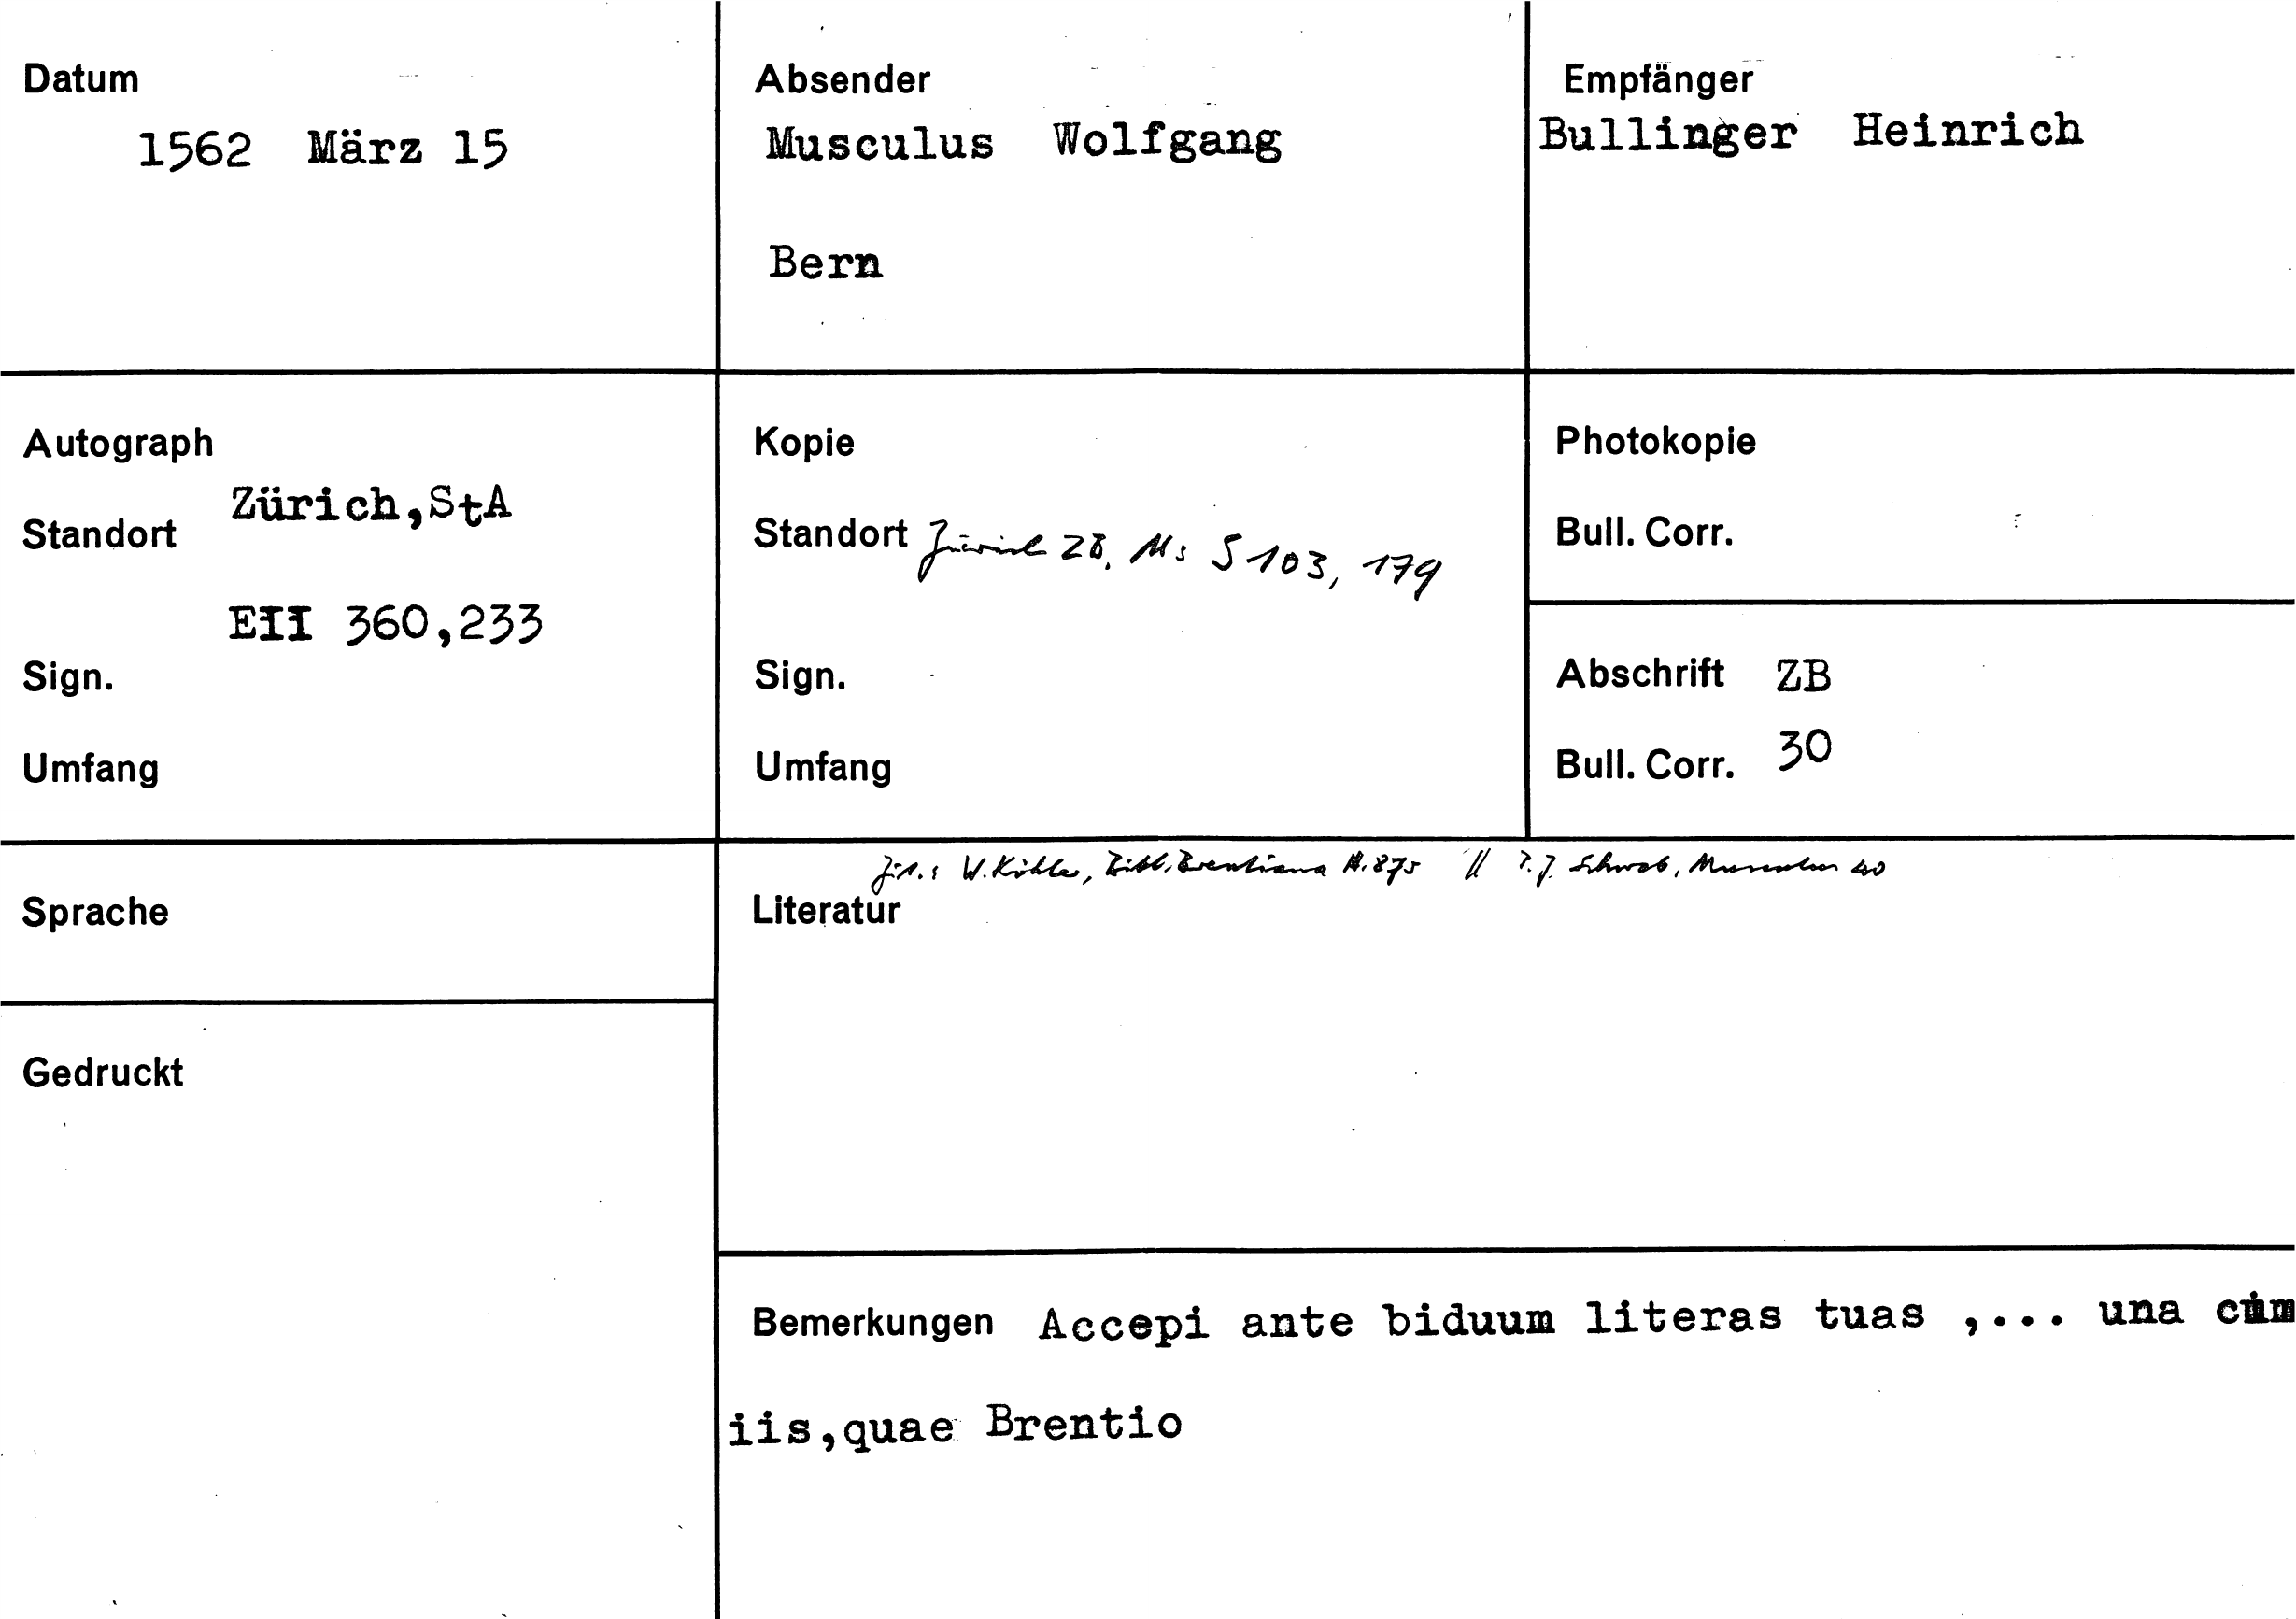 Datum
1562 März 15
Absender
Musculus Wolfgang
Bern
Empfänger
Bullinger Heinrich
Autograph
Standort Zürich,StA
EII 360,233
Sign.
Umfang
Kopie
Standort Zürich ZB, Ms S 103, 179
Sign.
Umfang
Photokopie
Bull. Corr.
Abschrift ZB
Bull. Corr. 30
Sprache
Gedruckt
Zit.: W. Köhler, Bibl. Brentiana A. 875 // P. J. Schwab, Musculus 40
Literatur
Bemerkungen Accepi ante biduum literas tuas ,... una cum
iis,quae Brentio